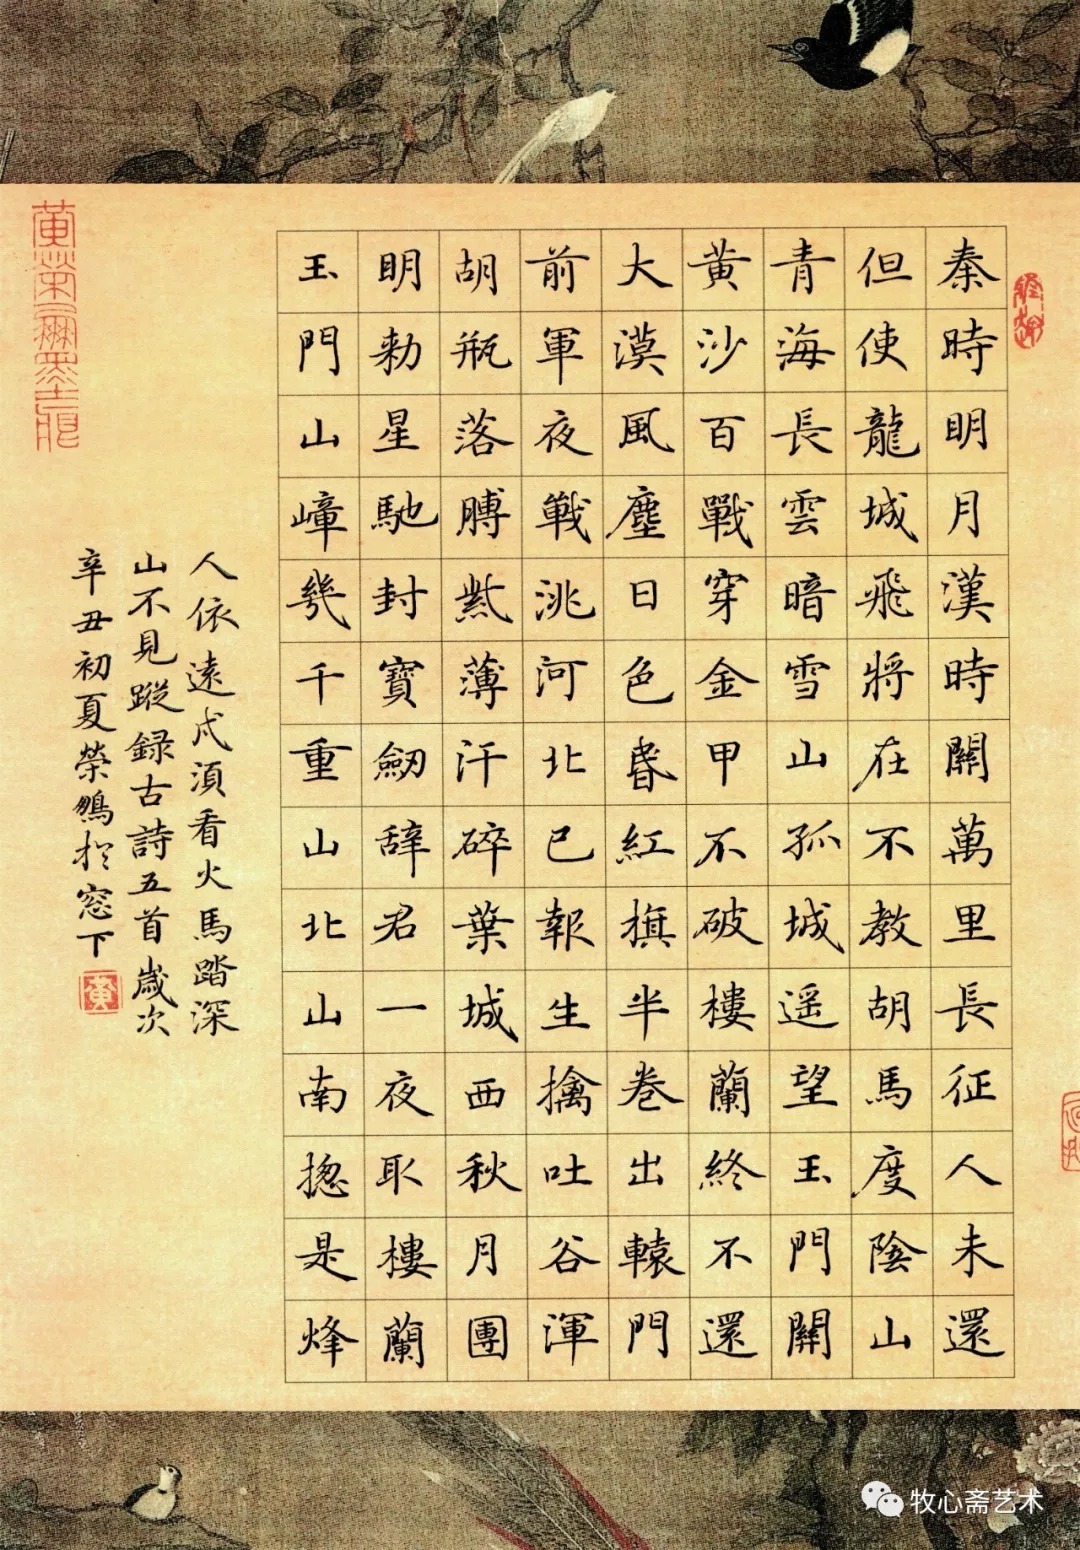 秦時明月漢時關萬里長征人未還
但使龍城飛將在不教胡馬度陰山
青海長雲暗雪山孤城遥望玉門關
黄沙百戰穿金甲不破樓蘭終不還
大漠風塵日色昏紅旗半卷出轅門
前軍夜戰洮河北已報生擒吐谷渾
胡瓶落膊紫薄汗碎葉城西秋月團
明勅星馳封寶劒辭君一夜取樓蘭
玉門山嶂幾千重山北山南揔是烽
人依遠戍須看火馬踏深
山不見蹤録古詩五首歲次
辛丑初夏榮鵬於窓下
黄
牧心斋艺术